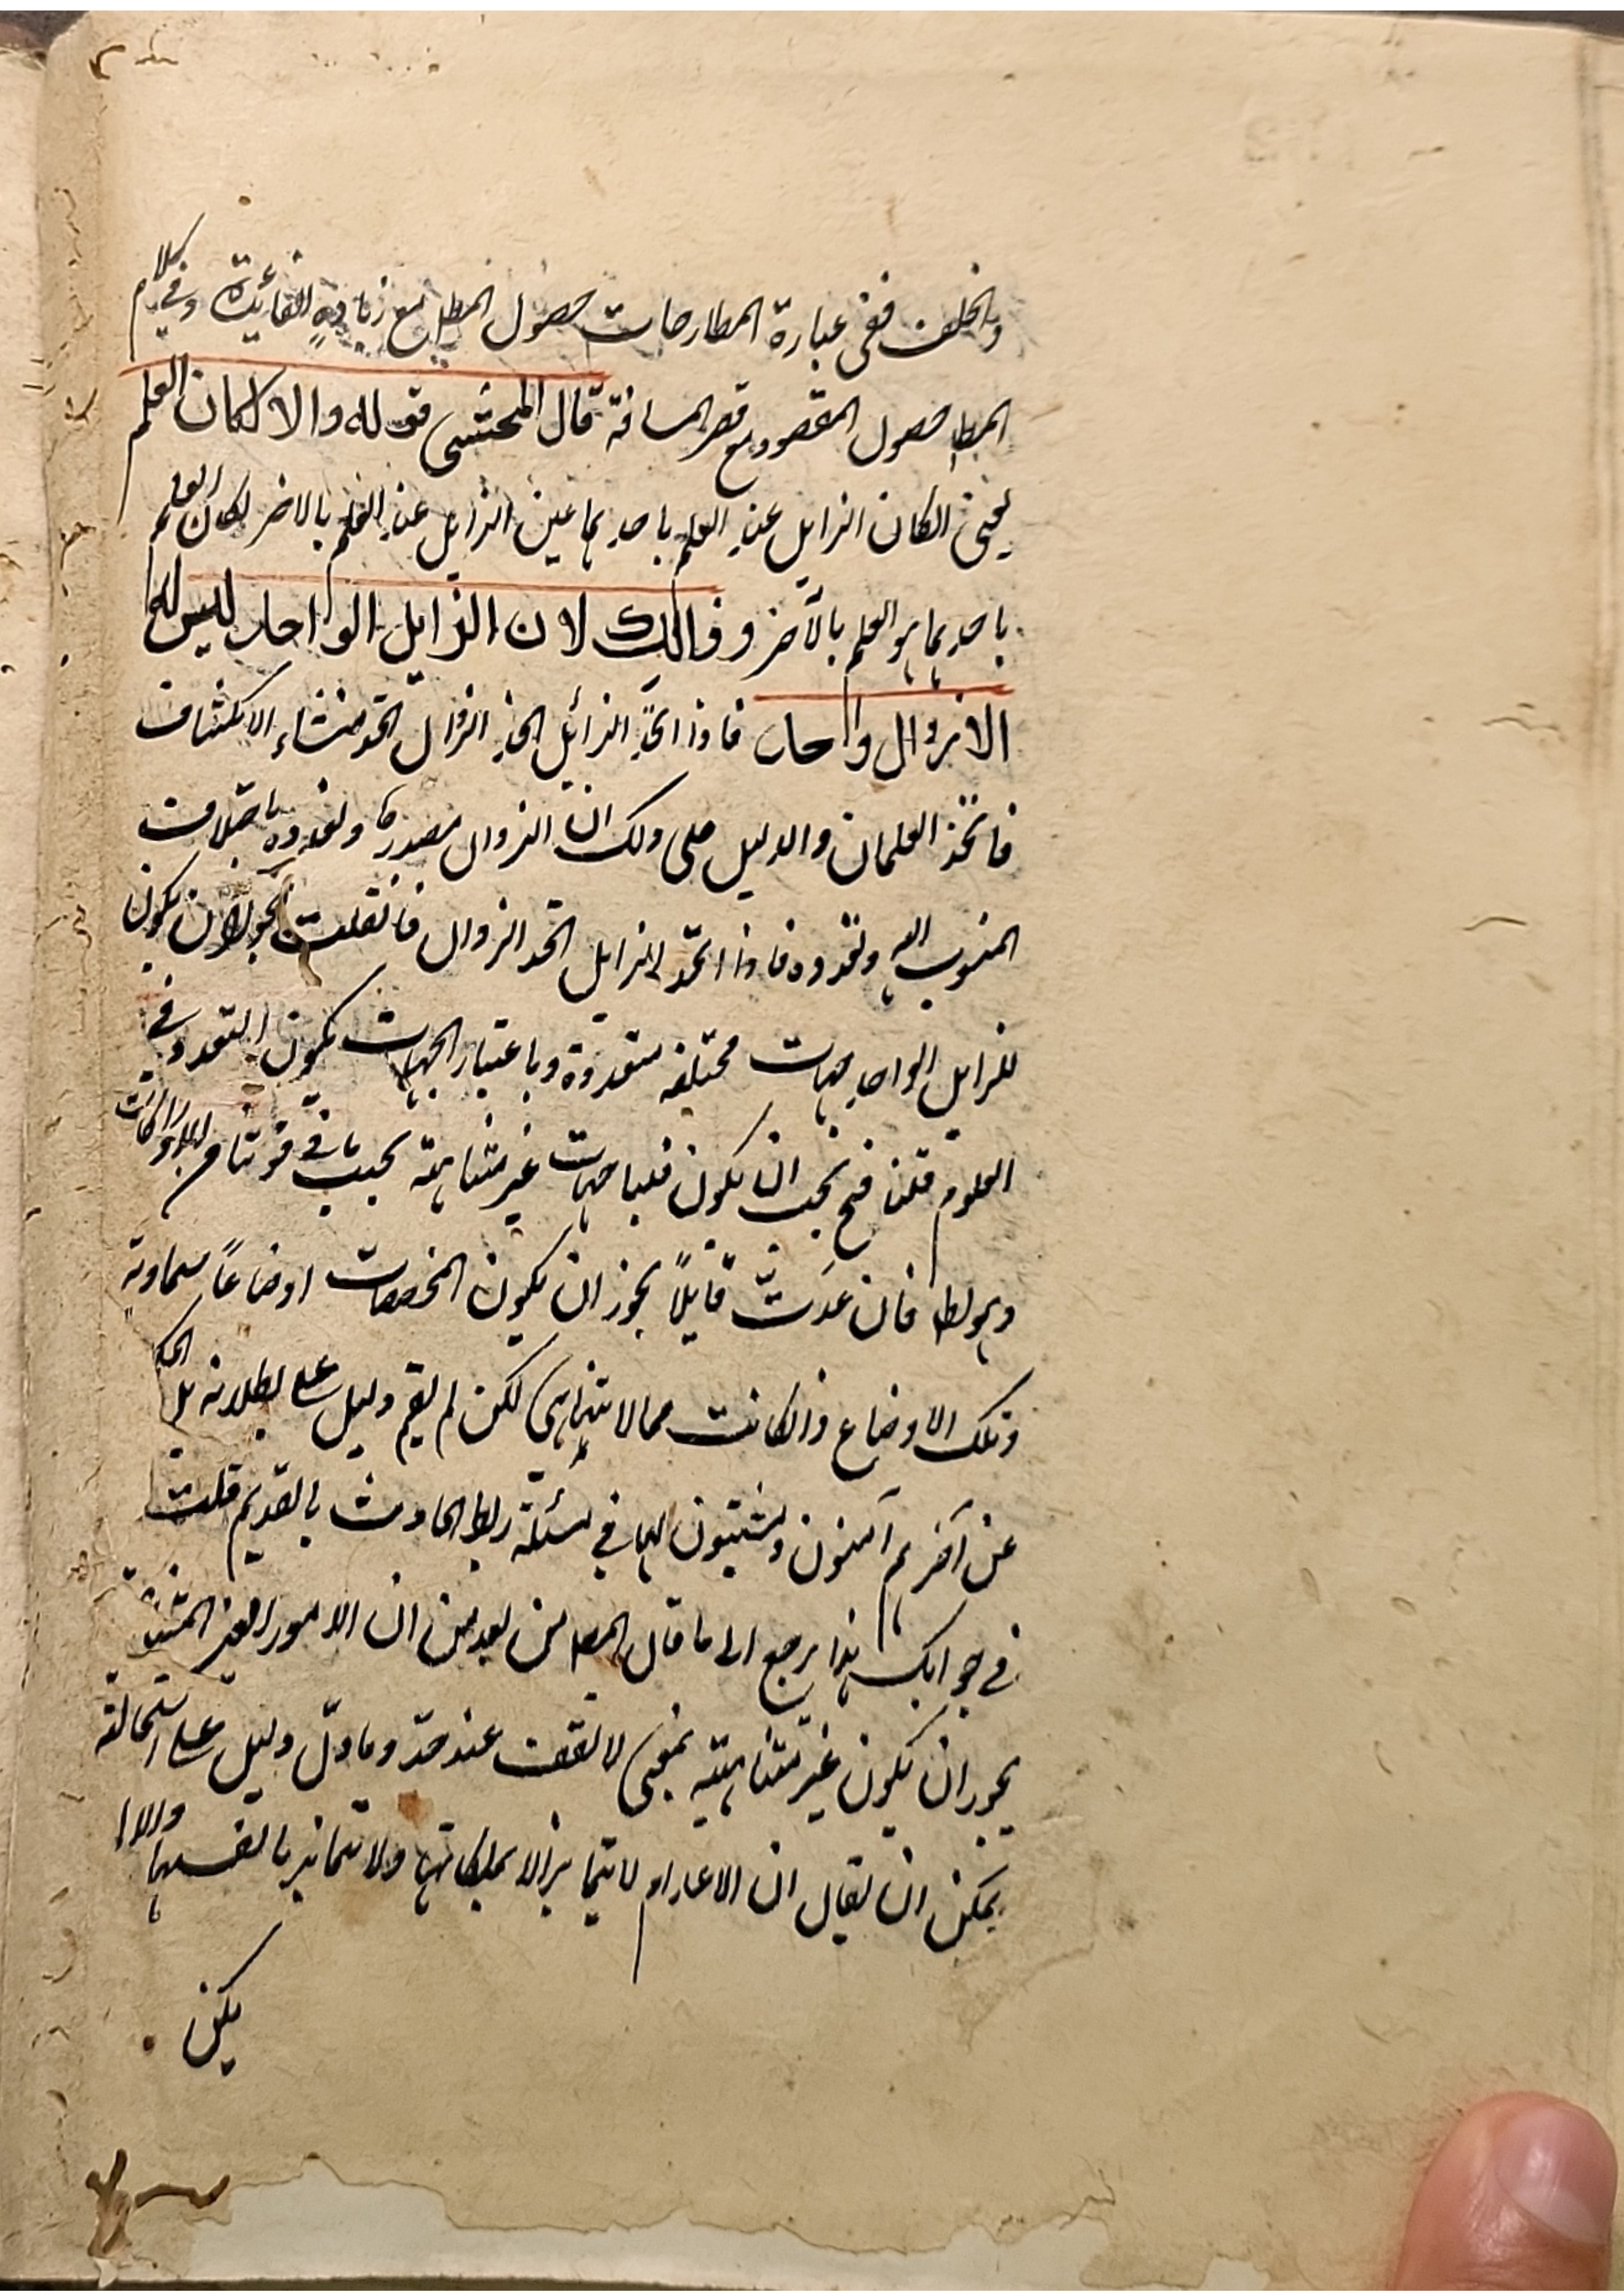 والخلف ففى عبارة المطارحات حصول المطلـ مع زيادةٍ الفائدة وفى كلام
المطـ حصول المقصود مع قصر المسافة قال المحشى قوله والا لكان العلم
يعنى لو كان الزايل عند العلم باحديهما عين الزايل عند العلم بالاخر لكان العلم
باحديهما هو العلم بالآخر وذالك لان الزايل الواحد ليس له
الا زوال واحد فاذا اتحد الزائل اتحد الزوال اتحد منشاء الانكشاف
فاتحد العلمان والدليل على ذلك ان الزوال مصدر وتعدده باختلاف
المنسوب اليه وتعدده فاذا اتحد الزايل اتحد الزوال فان قلت يجوز ان يكون
للزايل الواحد جهات مختلفه متعددة وباعتبار الجهات يكون التعدد فى
العلوم قلنا فح يجب ان يكون فينا جهات غير متناهية بحسب ما فى قوتنا من الادراكات
وهو باطل فان عدتّ قايلاً يجوز ان يكون المخصصات اوضاعاً سماوية
وتلك الاوضاع وان كانت مما لا يتناهى لكن لم يقم دليل على بطلانه بل الحكماء
عن آخرهم آمنون ويثبتون لها فى مسئلة ربط الحادث بالقديم قلت
فى جوابك هذا يرجع الى ما قال المصـ من بعد من ان الامور الغير المتناهية
يجوز ان يكون غير متناهية بمعنى لا تقف عند حدّ وما دلّ دليل على استحالته
يمكن ان يقال ان الاعدام لا يتمايز الا بملكاتها ولا تتمايز بانفسها والا
يكن